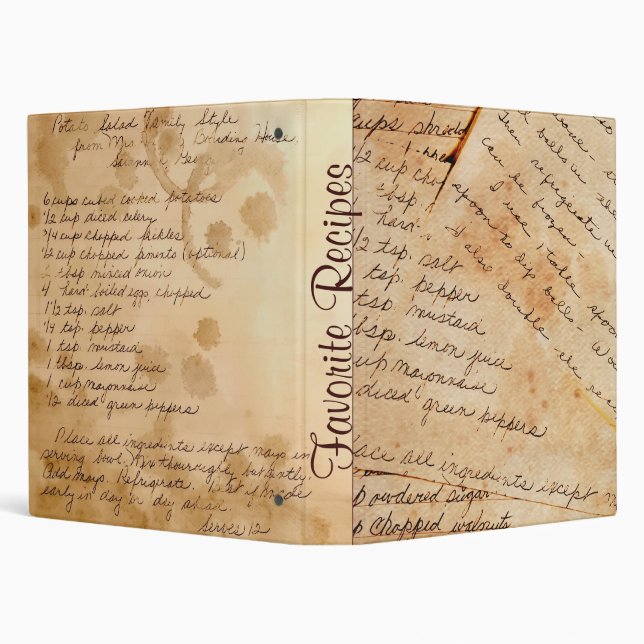 Potato Salad Family Style
from Mrs. Boarding House,
6 cups cubed cooked potatoes
1/2 cup diced celery
3/4 cup chopped pickles
1/2 cup chopped pimento (optional)
2 tbsp minced onion
4 hard-boiled eggs, chopped
1 1/2 tsp. salt
1/4 tsp. pepper
1 tsp. mustard
1 tbsp. lemon juice
1 cup mayonnaise
1/2 diced green peppers
Place all ingredients except mayo in
serving bowl. Mix thouroughly but gently.
Add mayo. Refrigerate. if made
early in day or day ahead.
Serves 12
Favorite Recipes
cups
1/2 cup
tbsp.
hard-
1/2 tsp. salt
tsp. pepper
tsp. mustard
tbsp. lemon juice
cup mayonnaise
diced green peppers
lace all ingredients except m
powdered sugar
p chopped walnuts
balls in the
Then refrigerate
can be frozen-
I use 1 table spoon
spoon to dip balls-
I also double the rec